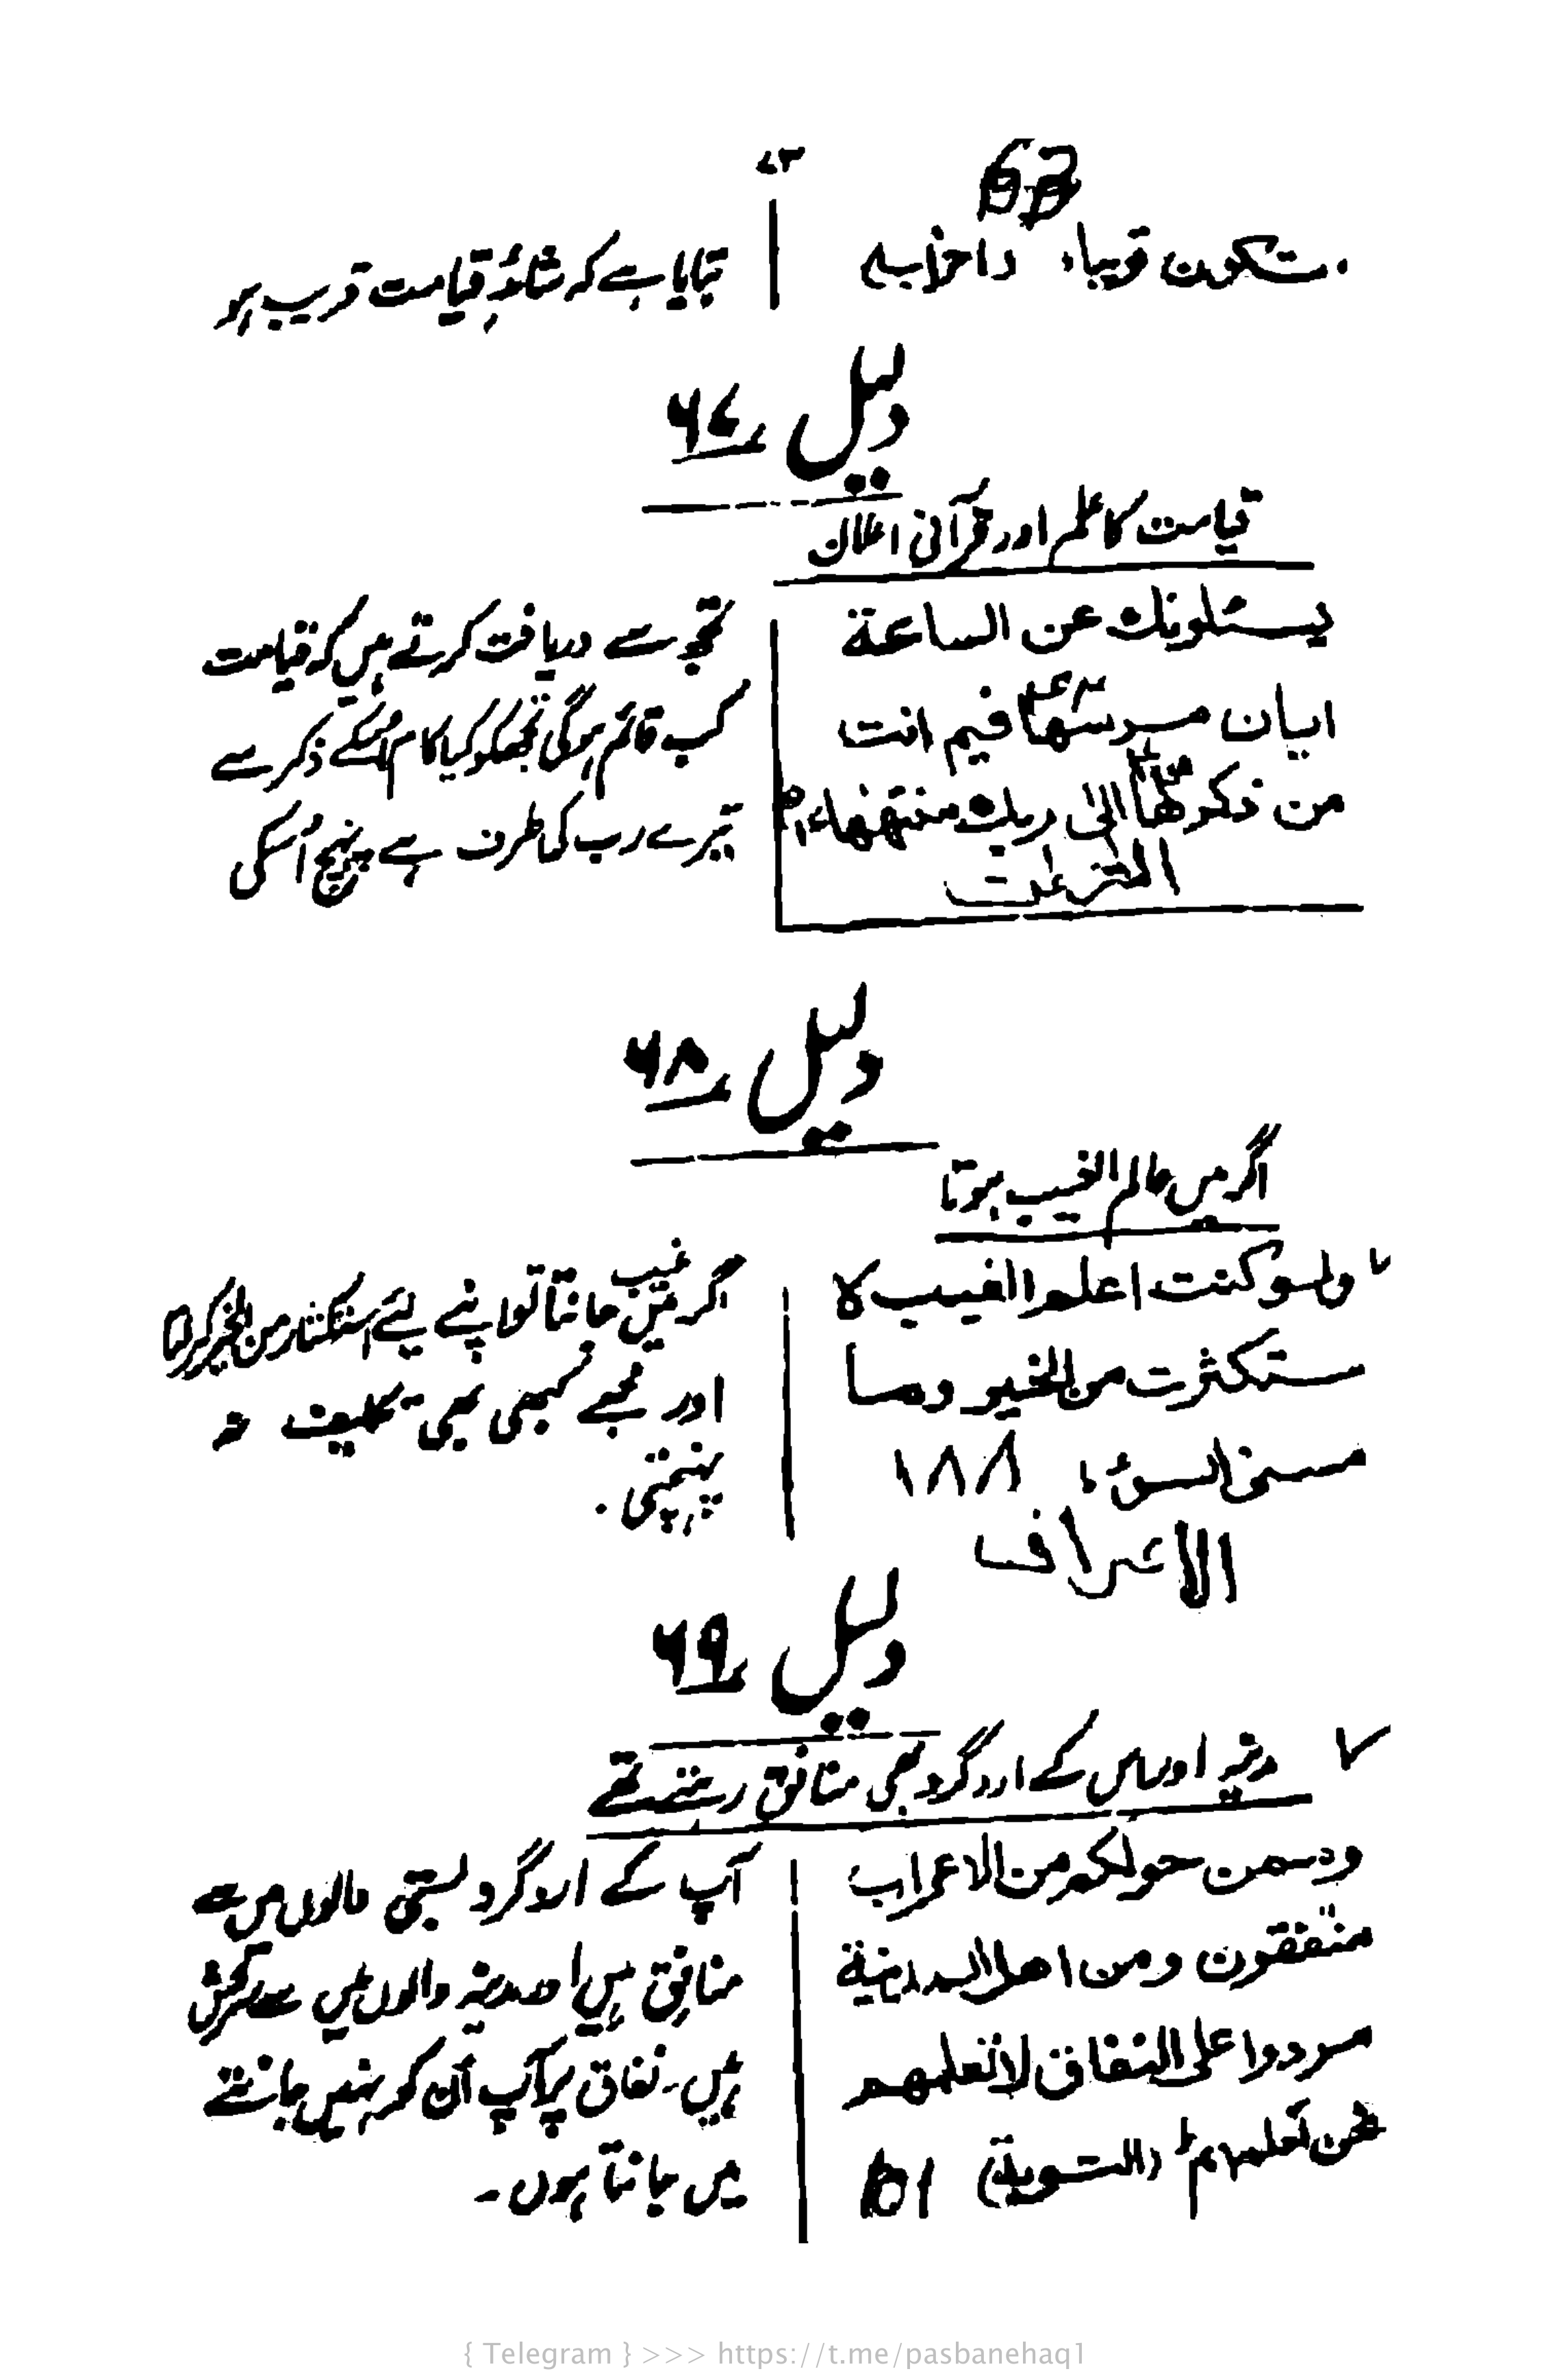 ۴۳
63
تکون قریباہ (احزاب)
بتایا ہے کہ شائد قیامت قریب ہو
دلیل ۶۷
قیامت کا علم اور قرآنی اعلان
یسئلونك عن الساعة
ایان مرسٰھا ۴۲ فیم انت
من ذکرٰھا ۴۳ الیٰ ربك منتھٰھا
النٰزعٰت
تجھ سے دریافت کرتے ہیں کہ قیامت
کب قائم ہوگی تجھکو کیا کام اُسکے ذکر سے
تیرے رب کی طرف ہے پہنچ اُسکی
دلیل ۶۸
اگر میں عالم الغیب ہوتا
ولو کنت اعلم الغیب لا
ستکثرت من الخیر وما
مسنی السوٓء ۱۸۸
الاعراف
اگر میں غیب جانتا تو اپنے لئے استکثار من الخیر کرلیتا
اور مجھے کبھی بھی تکلیف نہ
پہنچتی۔
دلیل ۶۹
مدینہ اور اس کے اردگرد بھی منافق رہتے تھے
وممن حولکم من الاعراب
منٰفقون ومن اھل المدینة
مردوا علی النفاق لا تعلمھم
نحن نعلمھم ط (التوبة) 101
آپ کے اردگرد بستی والوں میں سے
منافق ہیں اور مدینہ والوں میں سے سرکش
ہیں۔ نفاق پر آپ اُن کو نہیں جانتے
میں جانتا ہوں۔
{ Telegram } >>> https://t.me/pasbanehaq1